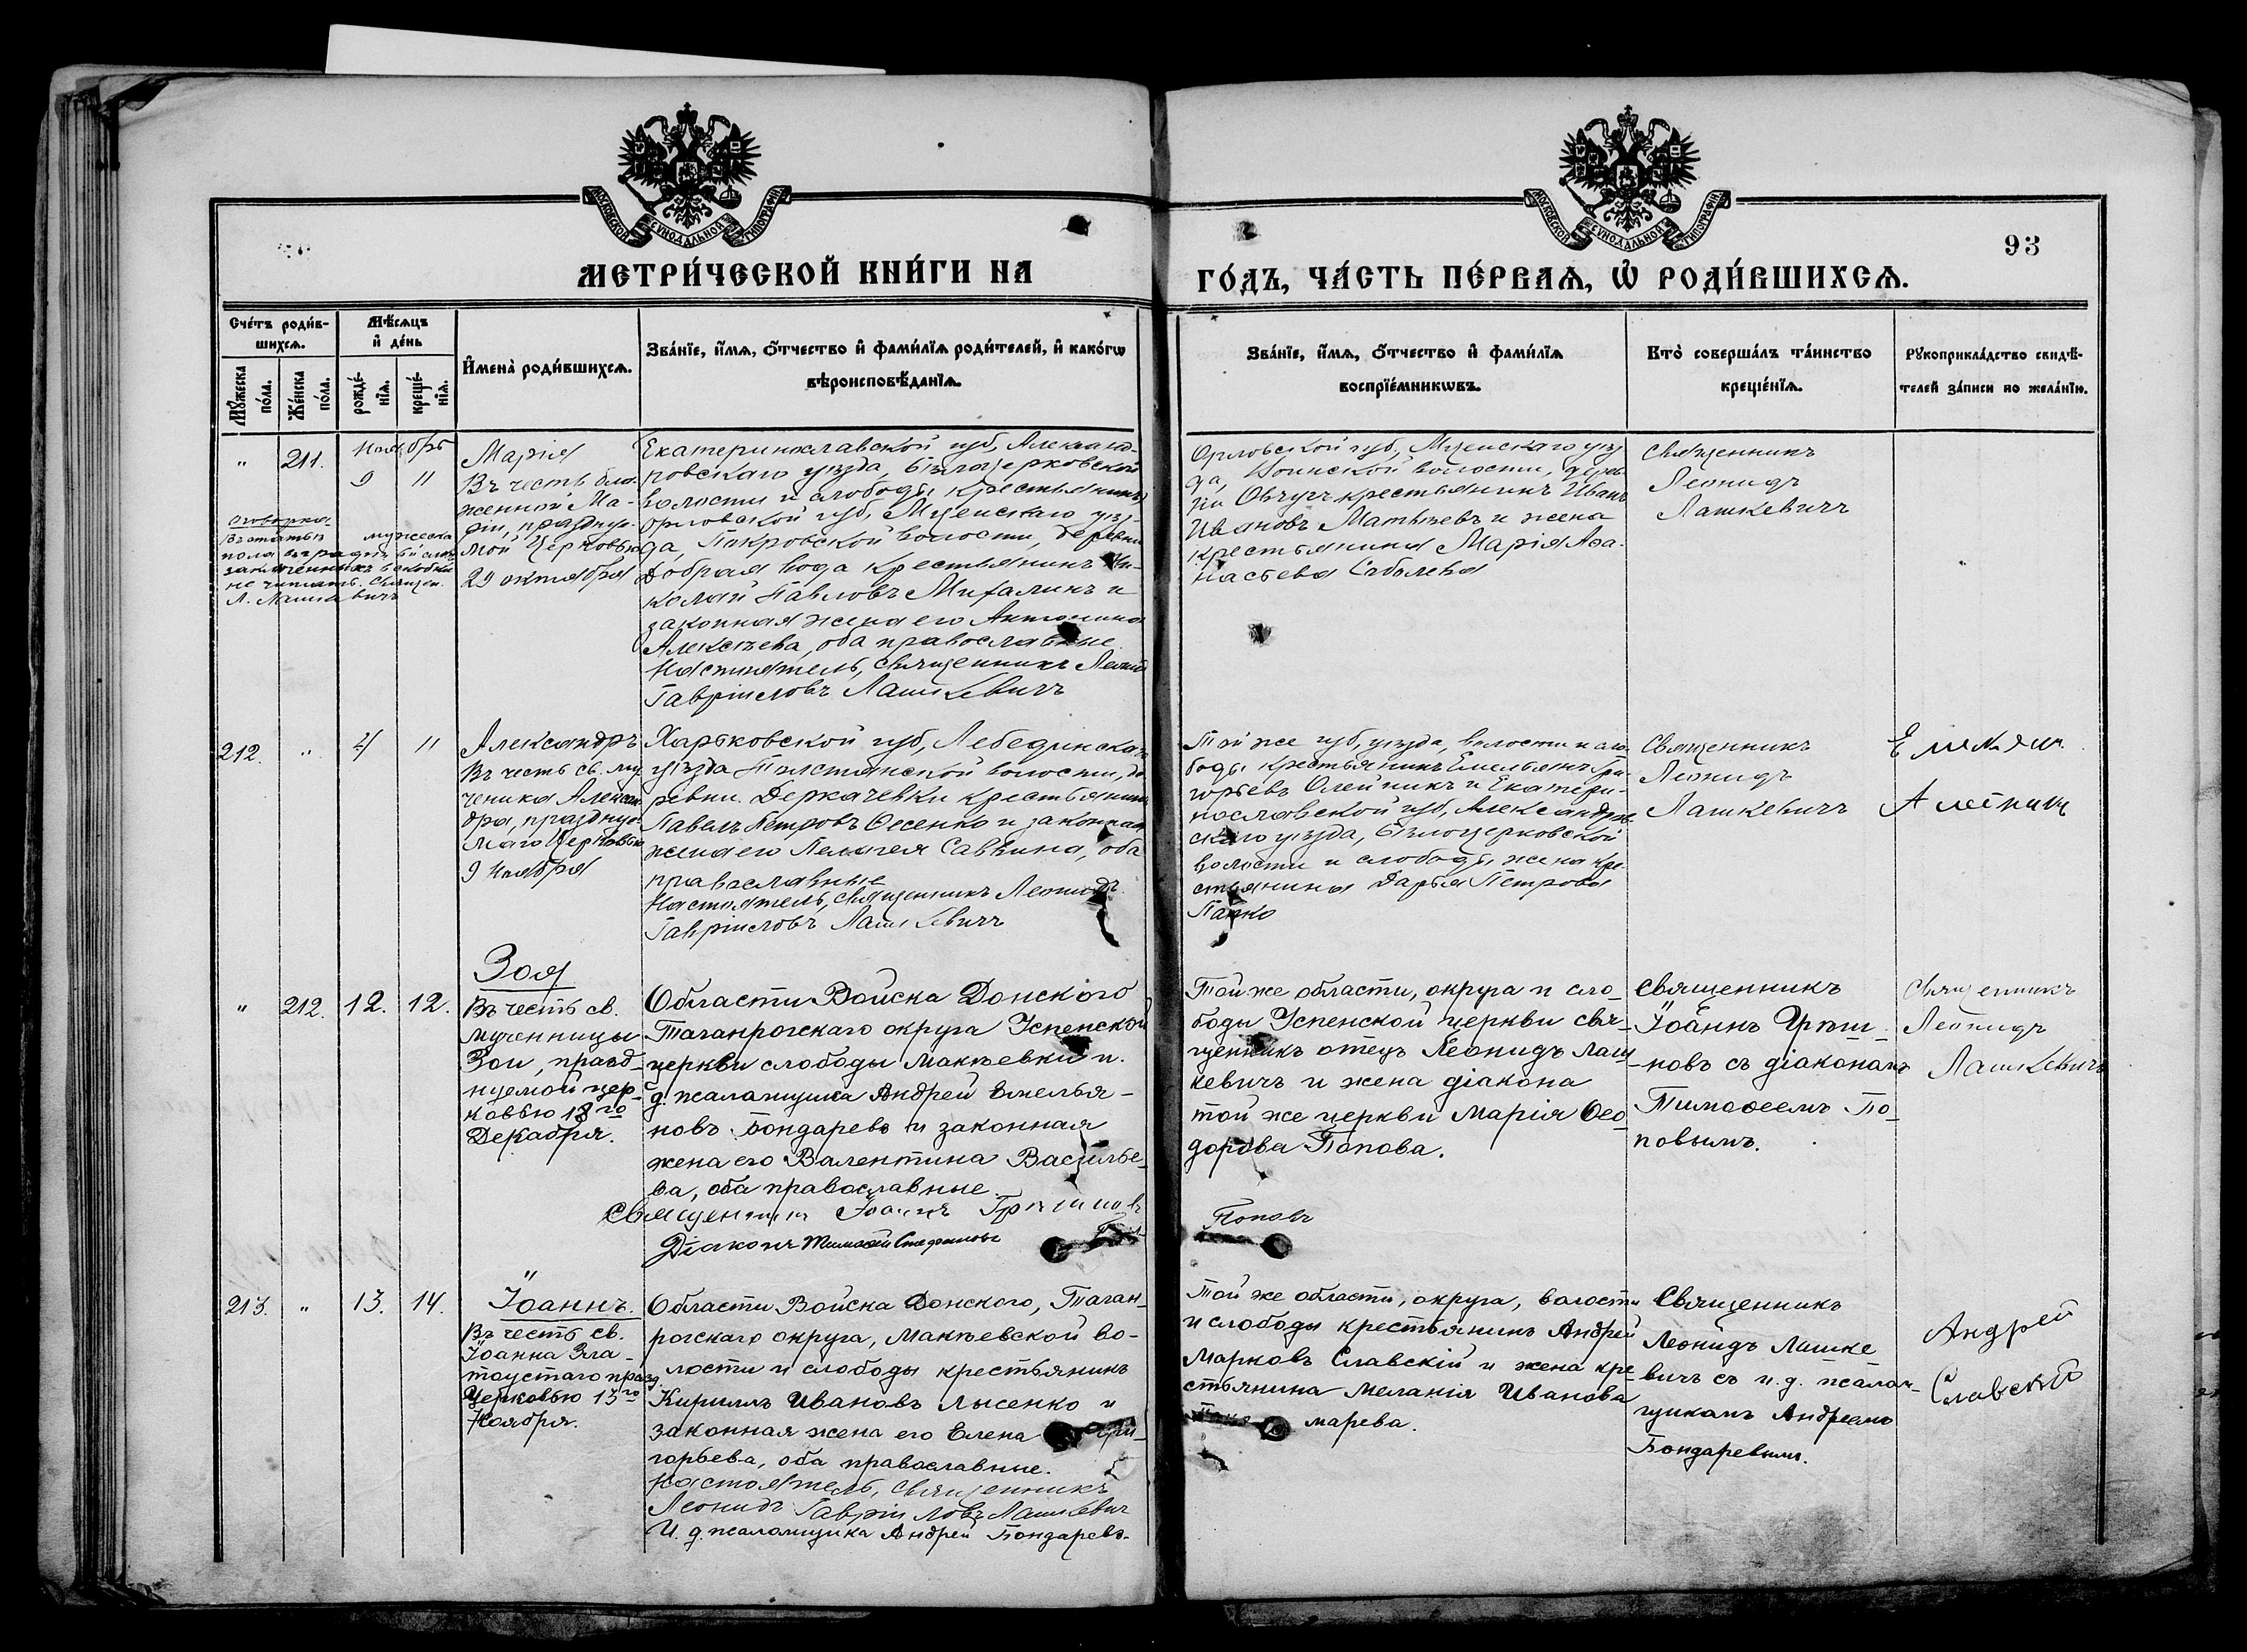 МОСКОВСКОЙ СУНОДАЛЬНОЙ ТИПОГРАФІИ
МОСКОВСКОЙ СУНОДАЛЬНОЙ ТИПОГРАФІИ
93
МЕТРИ́ЧЕСКОЙ КНИ́ГИ НА
ГО́ДЪ, ЧА́СТЬ ПЕ́РВАѦ, Ѡ҆ РОДИ́ВШИХСѦ.
Сче́тъ роди́в-
шихсѧ.
Мѣ́сѧцъ
и҆ де́нь
Мꙋ́жеска
по́ла.
Же́нска
по́ла.
рожде́-
нїѧ.
креще́-
нїѧ.
И҆мена̀ роди́вшихсѧ.
Зва́нїе, и҆́мѧ, ѻ҆́тчество и҆ фами́лїѧ роди́телей, и҆ како́гѡ
вѣроисповѣ́данїѧ.
Зва́нїе, и҆́мѧ, ѻ҆́тчество и҆ фами́лїѧ
воспрїе́мникѡвъ.
Кто̀ соверша́лъ та́инство
креще́нїѧ.
Рꙋкоприкла́дство свидѣ́-
телей за́писи по жела́нїю.
" 211. Ноябрь
9 11
Марія
Въ честь бла-
женной Ма-
ріи, празднуе-
мой Церковью
29 октября
Оговорка
Въ статьѣ мужеска
пола
не читать. Священ.
Л. Лашкевичъ
Екатеринославской губ, Александ-
ровскаго уѣзда, Бѣлоцерковской
волости и слободы крестьянинъ
Орловской губ, Мценскаго уѣз-
да, Покровской волости, деревни
Добрая вода крестьянинъ Ни-
колай Павловъ Михалинъ и
законная жена его Антонина
Алексѣева, оба православные.
Настоятель, священникъ Леонид
Гавріиловъ Лашкевичъ
Орловской губ, Мценскаго уѣз-
да, Воинской волости, дерев
ни крестьянинъ Иванъ
Ивановъ Матвѣевъ и жена
крестьянина Марія Афа-
насьева Соболева
Священникъ
Леонидъ
Лашкевичъ
212. " 4 11
Александръ
Въ честь св. му-
ченика Алексан
дра, праздную-
маго Церковью
9 Ноября
Харьковской губ, Лебединскаго
уѣзда Толстянской волости, де
ревни Деркачевки крестьянинъ
Павелъ Петровъ Ѳесенко и законная
жена его Пелагея Саввина, оба
православные
Настоятель, священникъ Леонидъ
Гавріиловъ Лашкевичъ
Той же губ, уѣзда, волости и сло-
боды крестьянинъ Емельянъ Гри-
горьевъ Олейникъ и Екатери-
нославской губ, Александров-
скаго уѣзда, Бѣлоцерковской
волости и слободы жена кре-
стьянина Дарья Петрова
Папко
Священникъ
Леонидъ
Лашкевичъ
" 212. 12. 12.
Зоя
Въ честь св.
мученницы
Зои, празд-
нуемой цер-
ковью 18го
Декабря.
Области Войска Донскаго
Таганрогскаго округа Успенской
церкви слободы Макѣевки и.
д. псаломщика Андрей Емелья-
новъ Бондаревъ и законная
жена его Валентина Василье-
ва, оба православные.
Священникъ Іоаннъ Гришинов
Діаконъ Тимоѳей Стефановъ
Попов
Той же области, округа и сло-
боды Успенской церкви свя-
щенникъ отецъ Леонидъ Лаш
кевичъ и жена діакона
той же церкви Марія Ѳео
дорова Попова.
Поповъ
Священникъ
Іоаннъ Гриши-
новъ съ діакономъ
Тимоѳеемъ По-
повымъ.
Священникъ
Леонидъ
Лашкевичъ
213. " 13. 14.
Іоаннъ.
Въ честь св.
Іоанна Зла-
тоустаго празд.
Церковью 13го
Ноября.
Области Войска Донского, Таган-
рогскаго округа, Макѣевской во-
лости и слободы крестьянинъ
Кириллъ Ивановъ Лысенко и
законная жена его Елена Гри-
горьева, оба православные.
Настоятель, священникъ
Леонидъ Гавріиловъ Лашкевич
И. д. псаломщика Андрей Бондаревъ.
Той же области, округа, волости
и слободы крестьянинъ Андрей
Марковъ Славскій и жена кре-
стьянина Меланія Иванова
марева.
Священникъ
Леонидъ Лашке
вичъ съ и. д. псалом-
щикомъ Андреемъ
Бондаревымъ.
Андрей
Славский